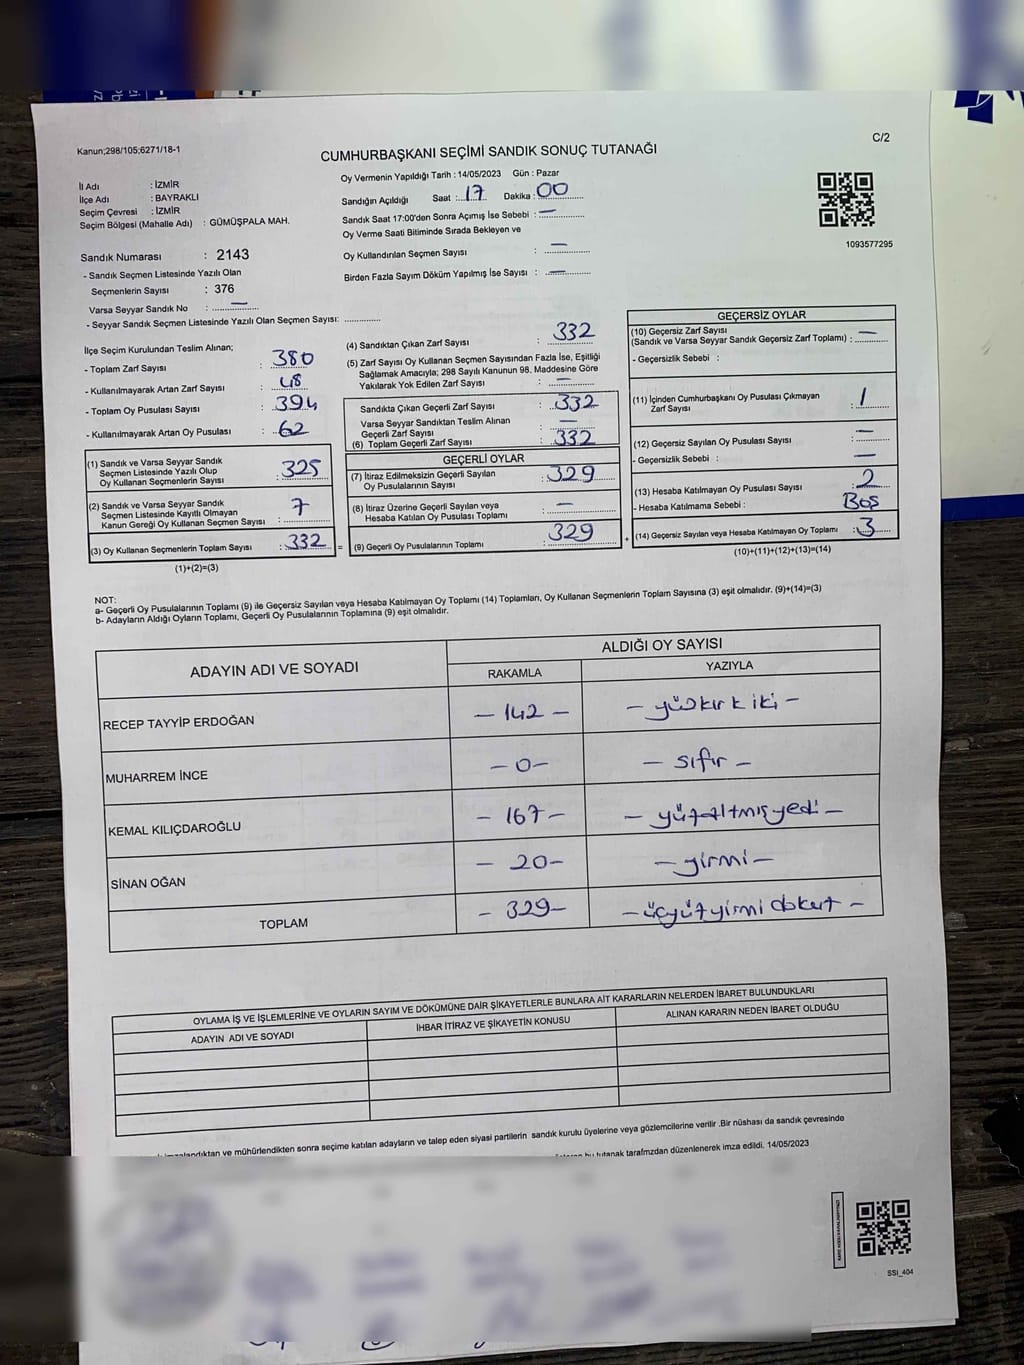 Kanun;298/105;6271/18-1
C/2
CUMHURBAŞKANI SEÇİMİ SANDIK SONUÇ TUTANAĞI
İl Adı : İZMİR
İlçe Adı : BAYRAKLI
Seçim Çevresi : İZMİR
Seçim Bölgesi (Mahalle Adı) : GÜMÜŞPALA MAH.
Sandık Numarası : 2143
- Sandık Seçmen Listesinde Yazılı Olan
Seçmenlerin Sayısı : 376
Varsa Seyyar Sandık No : —
- Seyyar Sandık Seçmen Listesinde Yazılı Olan Seçmen Sayısı: ..............
Oy Vermenin Yapıldığı Tarih : 14/05/2023 Gün : Pazar
Sandığın Açıldığı Saat : 17 Dakika : 00
Sandık Saat 17:00'den Sonra Açımış İse Sebebi : —
Oy Verme Saati Bitiminde Sırada Bekleyen ve
Oy Kullandırılan Seçmen Sayısı : —
Birden Fazla Sayım Döküm Yapılmış İse Sayısı : —
1093577295
İlçe Seçim Kurulundan Teslim Alınan;
- Toplam Zarf Sayısı : 380
- Kullanılmayarak Artan Zarf Sayısı : 48
- Toplam Oy Pusulası Sayısı : 394
- Kullanılmayarak Artan Oy Pusulası : 62
(1) Sandık ve Varsa Seyyar Sandık
Seçmen Listesinde Yazılı Olup
Oy Kullanan Seçmenlerin Sayısı : 325
(2) Sandık ve Varsa Seyyar Sandık
Seçmen Listesinde Kayıtlı Olmayan
Kanun Gereği Oy Kullanan Seçmen Sayısı : 7
(3) Oy Kullanan Seçmenlerin Toplam Sayısı : 332
(1)+(2)=(3)
=
(4) Sandıktan Çıkan Zarf Sayısı : 332
(5) Zarf Sayısı Oy Kullanan Seçmen Sayısından Fazla İse, Eşitliği
Sağlamak Amacıyla; 298 Sayılı Kanunun 98. Maddesine Göre
Yakılarak Yok Edilen Zarf Sayısı : —
Sandıkta Çıkan Geçerli Zarf Sayısı : 332
Varsa Seyyar Sandıktan Teslim Alınan
Geçerli Zarf Sayısı : —
(6) Toplam Geçerli Zarf Sayısı : 332
GEÇERLİ OYLAR
(7) İtiraz Edilmeksizin Geçerli Sayılan
Oy Pusulalarının Sayısı : 329
(8) İtiraz Üzerine Geçerli Sayılan veya
Hesaba Katılan Oy Pusulaları Toplamı : —
(9) Geçerli Oy Pusulalarının Toplamı : 329
+
GEÇERSİZ OYLAR
(10) Geçersiz Zarf Sayısı
(Sandık ve Varsa Seyyar Sandık Geçersiz Zarf Toplamı) : —
- Geçersizlik Sebebi :
(11) İçinden Cumhurbaşkanı Oy Pusulası Çıkmayan
Zarf Sayısı : 1
(12) Geçersiz Sayılan Oy Pusulası Sayısı : —
- Geçersizlik Sebebi : —
(13) Hesaba Katılmayan Oy Pusulası Sayısı : 2
- Hesaba Katılmama Sebebi : Boş
(14) Geçersiz Sayılan veya Hesaba Katılmayan Oy Toplamı : 3
(10)+(11)+(12)+(13)=(14)
NOT:
a- Geçerli Oy Pusulalarının Toplamı (9) ile Geçersiz Sayılan veya Hesaba Katılmayan Oy Toplamı (14) Toplamları, Oy Kullanan Seçmenlerin Toplam Sayısına (3) eşit olmalıdır. (9)+(14)=(3)
b- Adayların Aldığı Oyların Toplamı, Geçerli Oy Pusulalarının Toplamına (9) eşit olmalıdır.
ADAYIN ADI VE SOYADI ALDIĞI OY SAYISI
RAKAMLA YAZIYLA
RECEP TAYYİP ERDOĞAN – 142 – – yüzkırk iki –
MUHARREM İNCE – 0 – – sıfır –
KEMAL KILIÇDAROĞLU – 167 – – yüzaltmışyedi –
SİNAN OĞAN – 20 – – yirmi –
TOPLAM – 329 – – üçyüzyirmi dokuz –
OYLAMA İŞ VE İŞLEMLERİNE VE OYLARIN SAYIM VE DÖKÜMÜNE DAİR ŞİKAYETLERLE BUNLARA AİT KARARLARIN NELERDEN İBARET BULUNDUKLARI
ADAYIN ADI VE SOYADI İHBAR İTİRAZ VE ŞİKAYETİN KONUSU ALINAN KARARIN NEDEN İBARET OLDUĞU
mühürlendikten sonra seçime katılan adayların ve talep eden siyasi partilerin sandık kurulu üyelerine veya gözlemcilerine verilir .Bir nüshası da sandık çevresinde
bu tutanak tarafımızdan düzenlenerek imza edildi. 14/05/2023
SSI_404